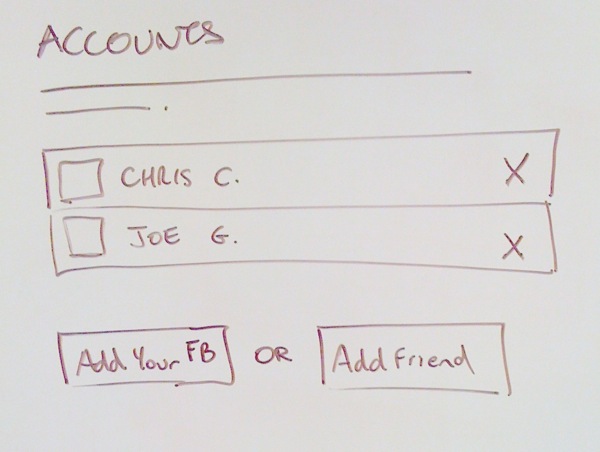 ACCOUNTS
CHRIS C. X
JOE G. X
Add Your FB OR Add Friend